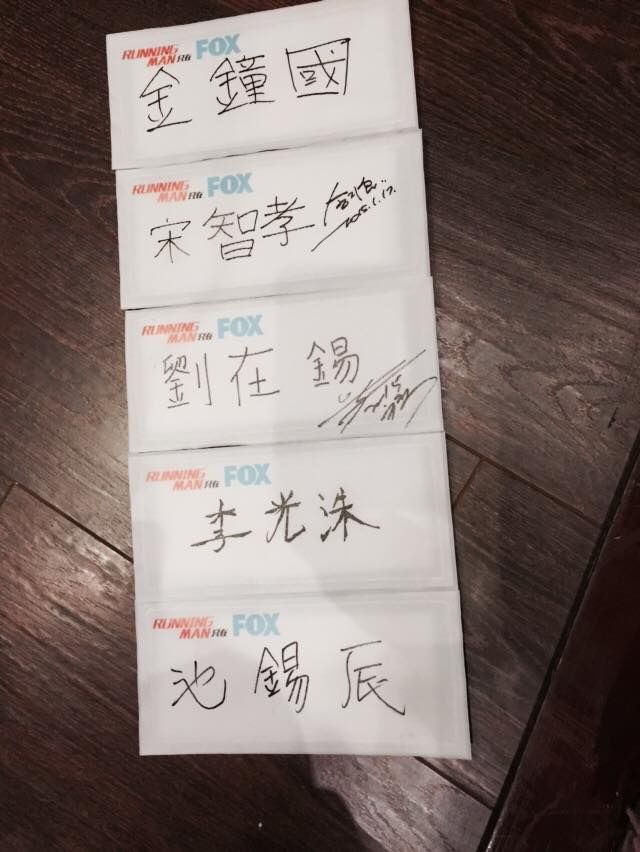 RUNNING
MAN 只在 FOX
金鐘國
RUNNING
MAN 只在 FOX
宋智孝
2015.1.17.
RUNNING
MAN 只在 FOX
劉在錫
RUNNING
MAN 只在 FOX
李光洙
RUNNING
MAN 只在 FOX
池錫辰